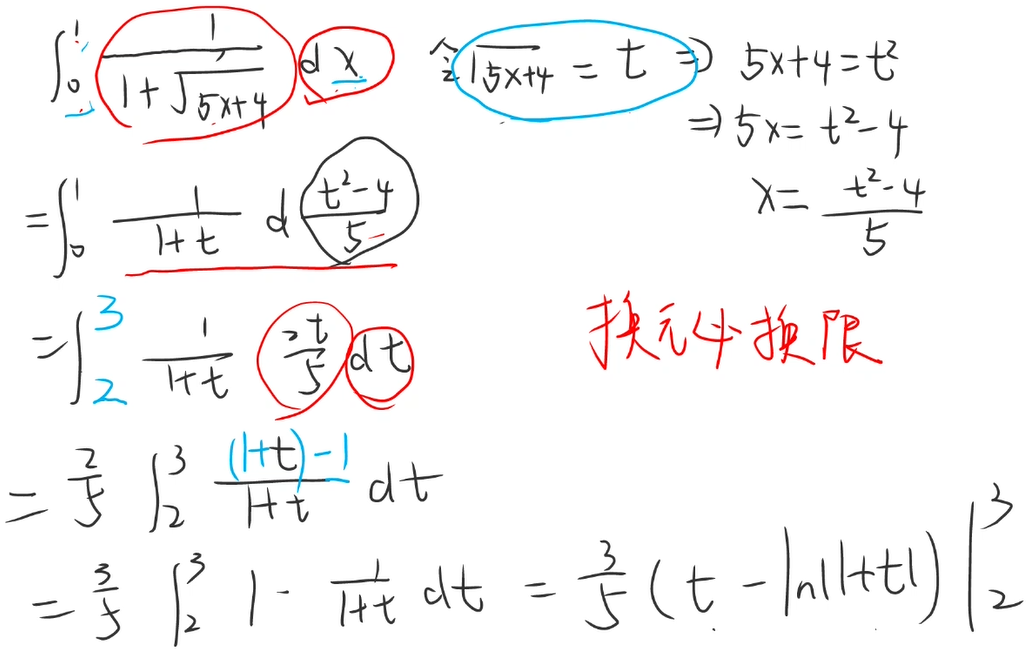 ∫₀¹ 1/(1+√(5x+4)) dx 令√(5x+4) = t ⇒ 5x+4=t²
⇒ 5x= t²-4
x= (t²-4)/5
=∫₀¹ 1/(1+t) d (t²-4)/5
=∫₂³ 1/(1+t) 2t/5 dt
换元必换限
= 2/5 ∫₂³ ((1+t)-1)/(1+t) dt
= 3/5 ∫₂³ 1 - 1/(1+t) dt = 3/5 (t - ln|1+t|) |₂³